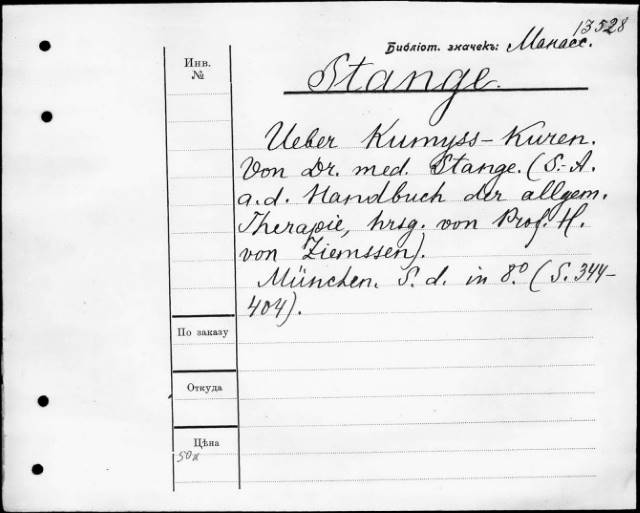 13528
Библіот. значекъ: Манасс.
Инв.
№
Stange.
Ueber Kumyss-Kuren.
Von Dr. med. Stange. (S.-A.
a. d. Handbuch der allgem.
Therapie, hrsg. von Prof. H.
von Ziemssen).
München. S. d. in 8º. (S. 344-
404).
По заказу
Откуда
Цѣна
50к